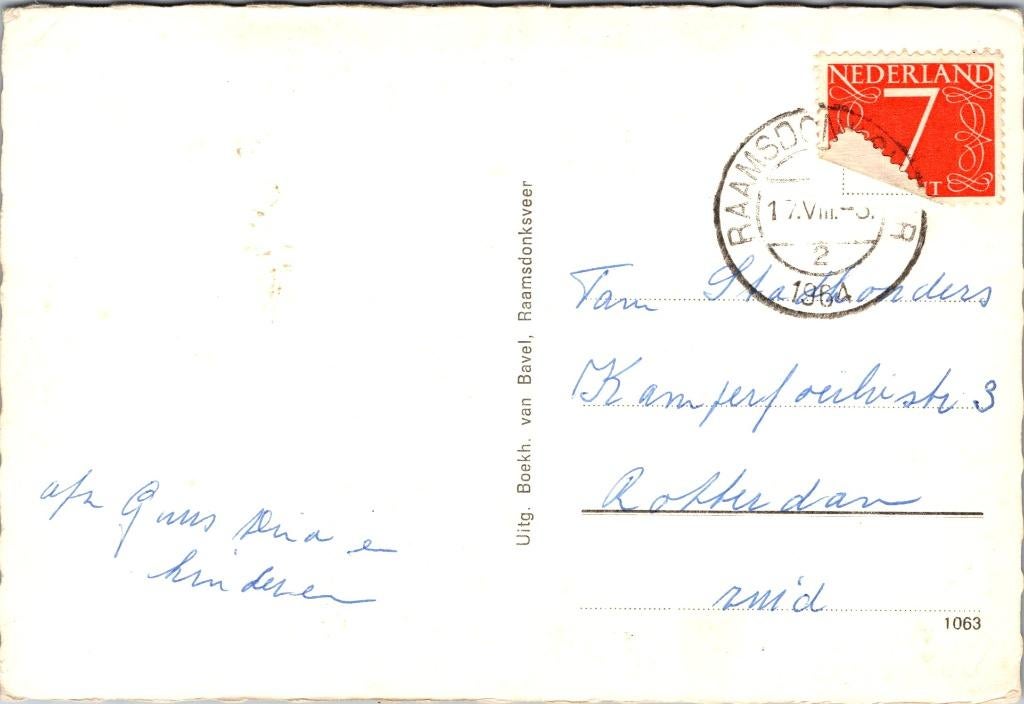 NEDERLAND
7
RAAMSDO R
17.VIII.-3.
2
1964
Uitg. Boekh. van Bavel, Raamsdonksveer
Fam Stadhouders
Kamperfoeliestr 3
Rotterdam
zuid
1063
afz Guus Dina en
kinderen